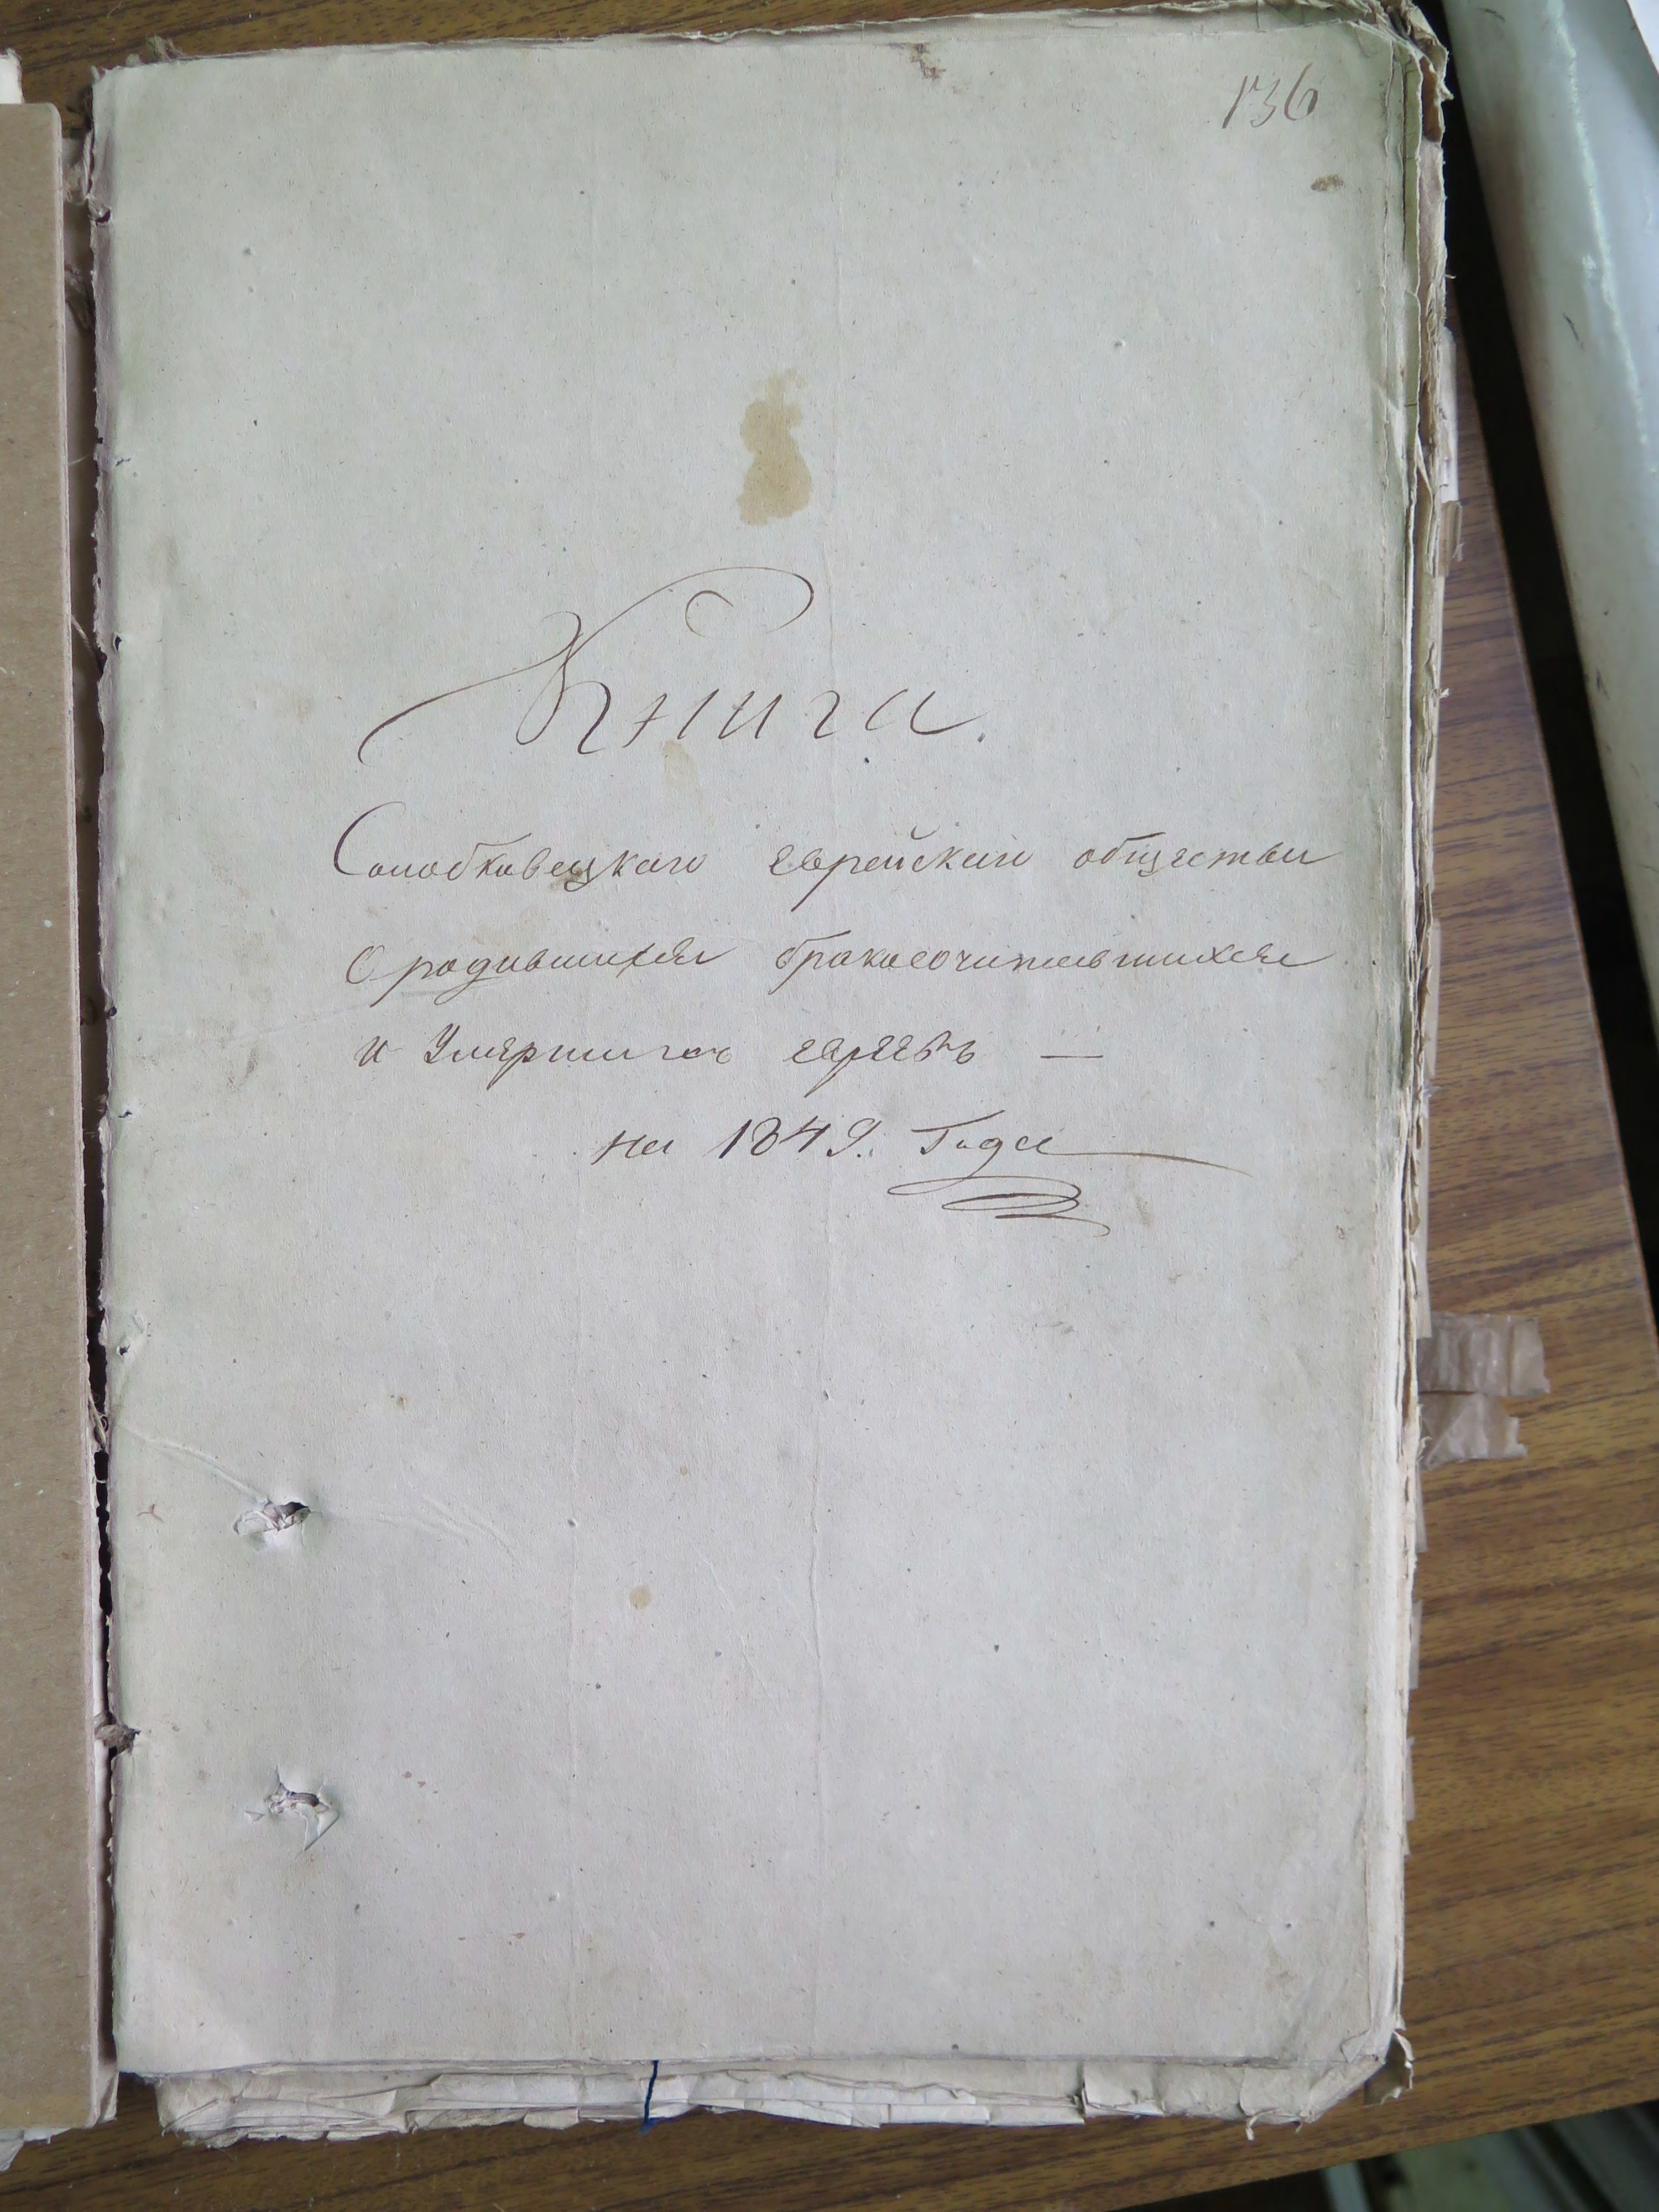 136
Книга.
Солобковецкаго еврейскаго общества
О родившихся бракосочитавшихся
и Умерших евреевъ —
на 1849. Года